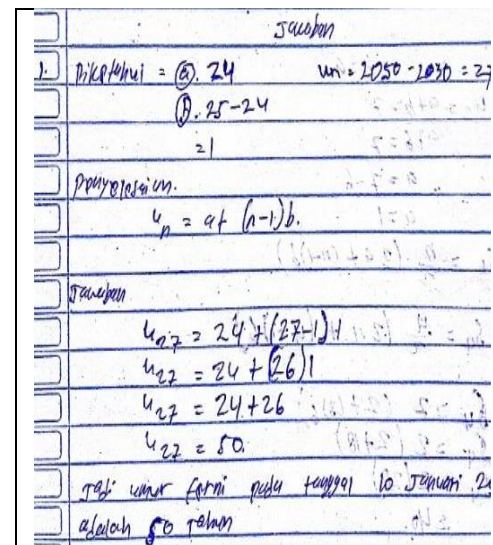 Jawaban
1. Diketahui = ⓐ. 24 un = 2050 - 2030 = 27
ⓑ. 25-24
=1
Penyelesaian.
u_n = a+ (n-1)b.
Jawaban
u_27 = 24 + (27-1) 1
u_27 = 24 + (26) 1
u_27 = 24 + 26
u_27 = 50.
Jadi umur pada tanggal 10 Januari 2
adalah 50 tahun